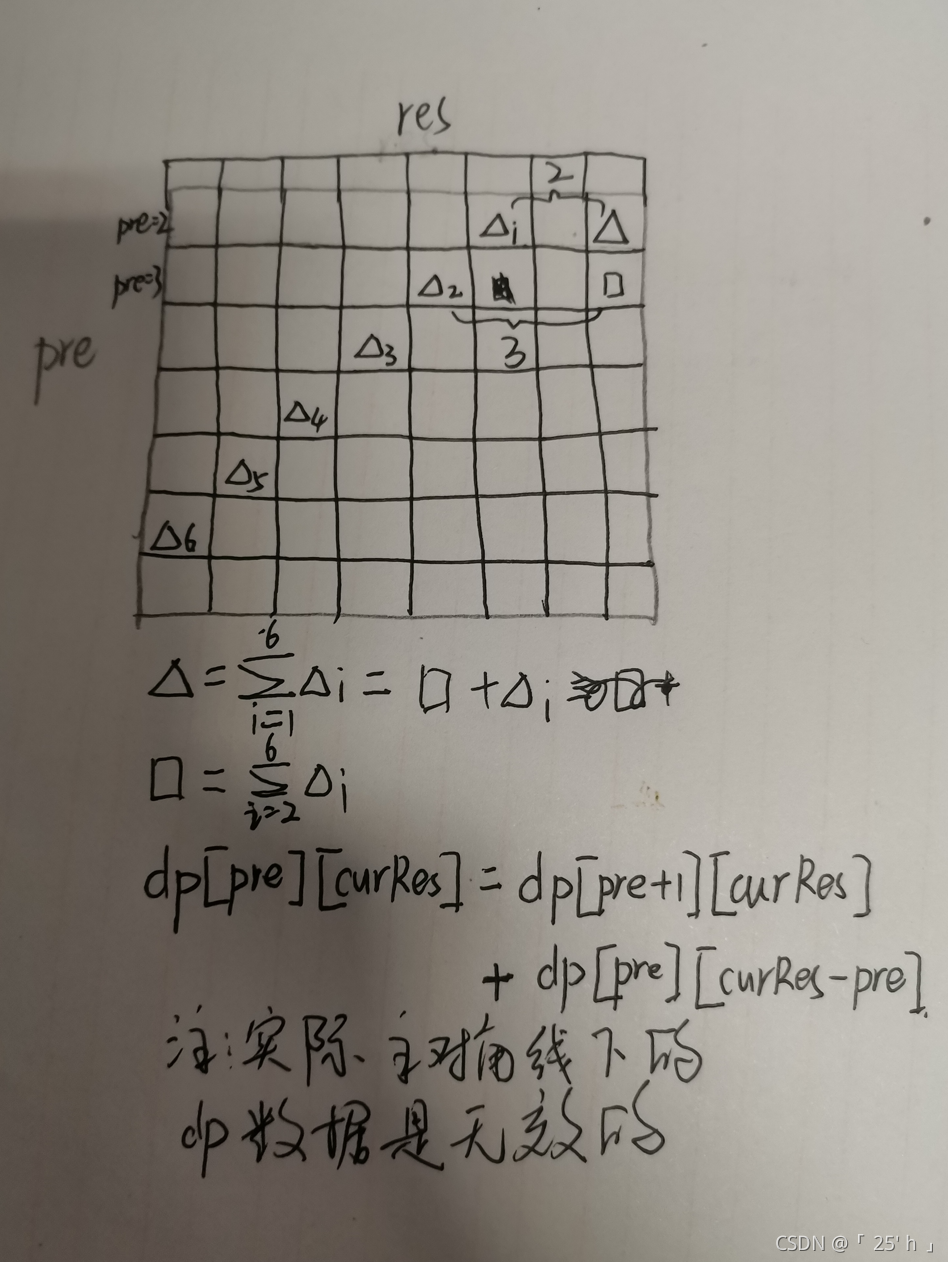 res
2
pre=2 Δi Δ
pre=3 Δ2 □
3
pre Δ3
Δ4
Δ5
Δ6
Δ = ∑_{i=1}^{6} Δi = □ + Δi
□ = ∑_{i=2}^{6} Δi
dp[pre][curRes] = dp[pre+1][curRes]
+ dp[pre][curRes-pre].
注:实际、主对角线下的
dp数据是无效的
CSDN @「 25' h 」